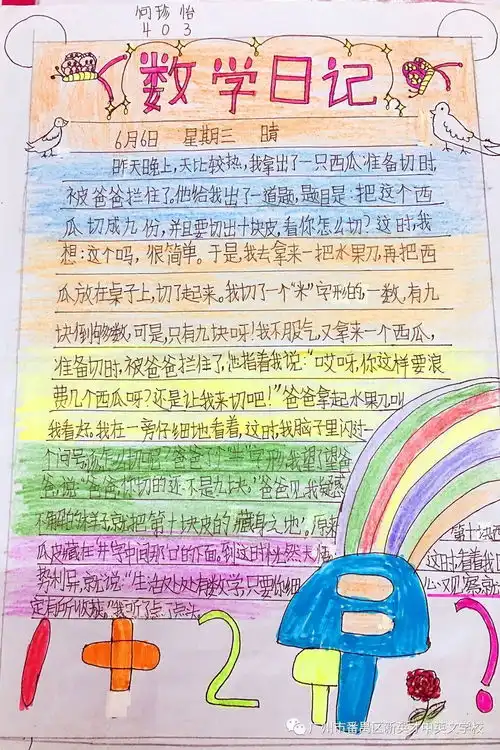 何琢怡
403
数学日记
6月6日 星期三 晴
昨天晚上,天比较热,我拿出了一只西瓜准备切时,
被爸爸拦住了。他给我出了一道题,题目是:把这个西
瓜切成九份,并且要切出十块皮,看你怎么切?这时,我
想:这个吗,很简单。于是,我去拿来一把水果刀,再把西
瓜放在桌子上,切了起来。我切了一个“米”字形的,一数,有九
块倒够数,可是,只有九块呀!我不服气,又拿来一个西瓜,
准备切时,被爸爸拦住了,他指着我说:“哎呀,你这样要浪
费几个西瓜呀?还是让我来切吧!”爸爸拿起水果刀,叫
我看好。我在一旁仔细地看着,这时,我脑子里闪过一
个问号:该怎么切呢?爸爸切了个“井”字形,我望了望爸
爸,说:“爸爸,你切的还不是九块。”爸爸见我疑惑
不解的样子,就把“第十块皮的‘藏身之地’。原来, 第十块西
瓜皮藏在“井”字中间那口的下面。到这时恍然大悟, 这时,看着我
势利导,就说:“生活处处有数学,只要你细 心观察,就
定有所收获。”我听了点了点头。
1+2=?
广州市番禺区新英才中英文学校